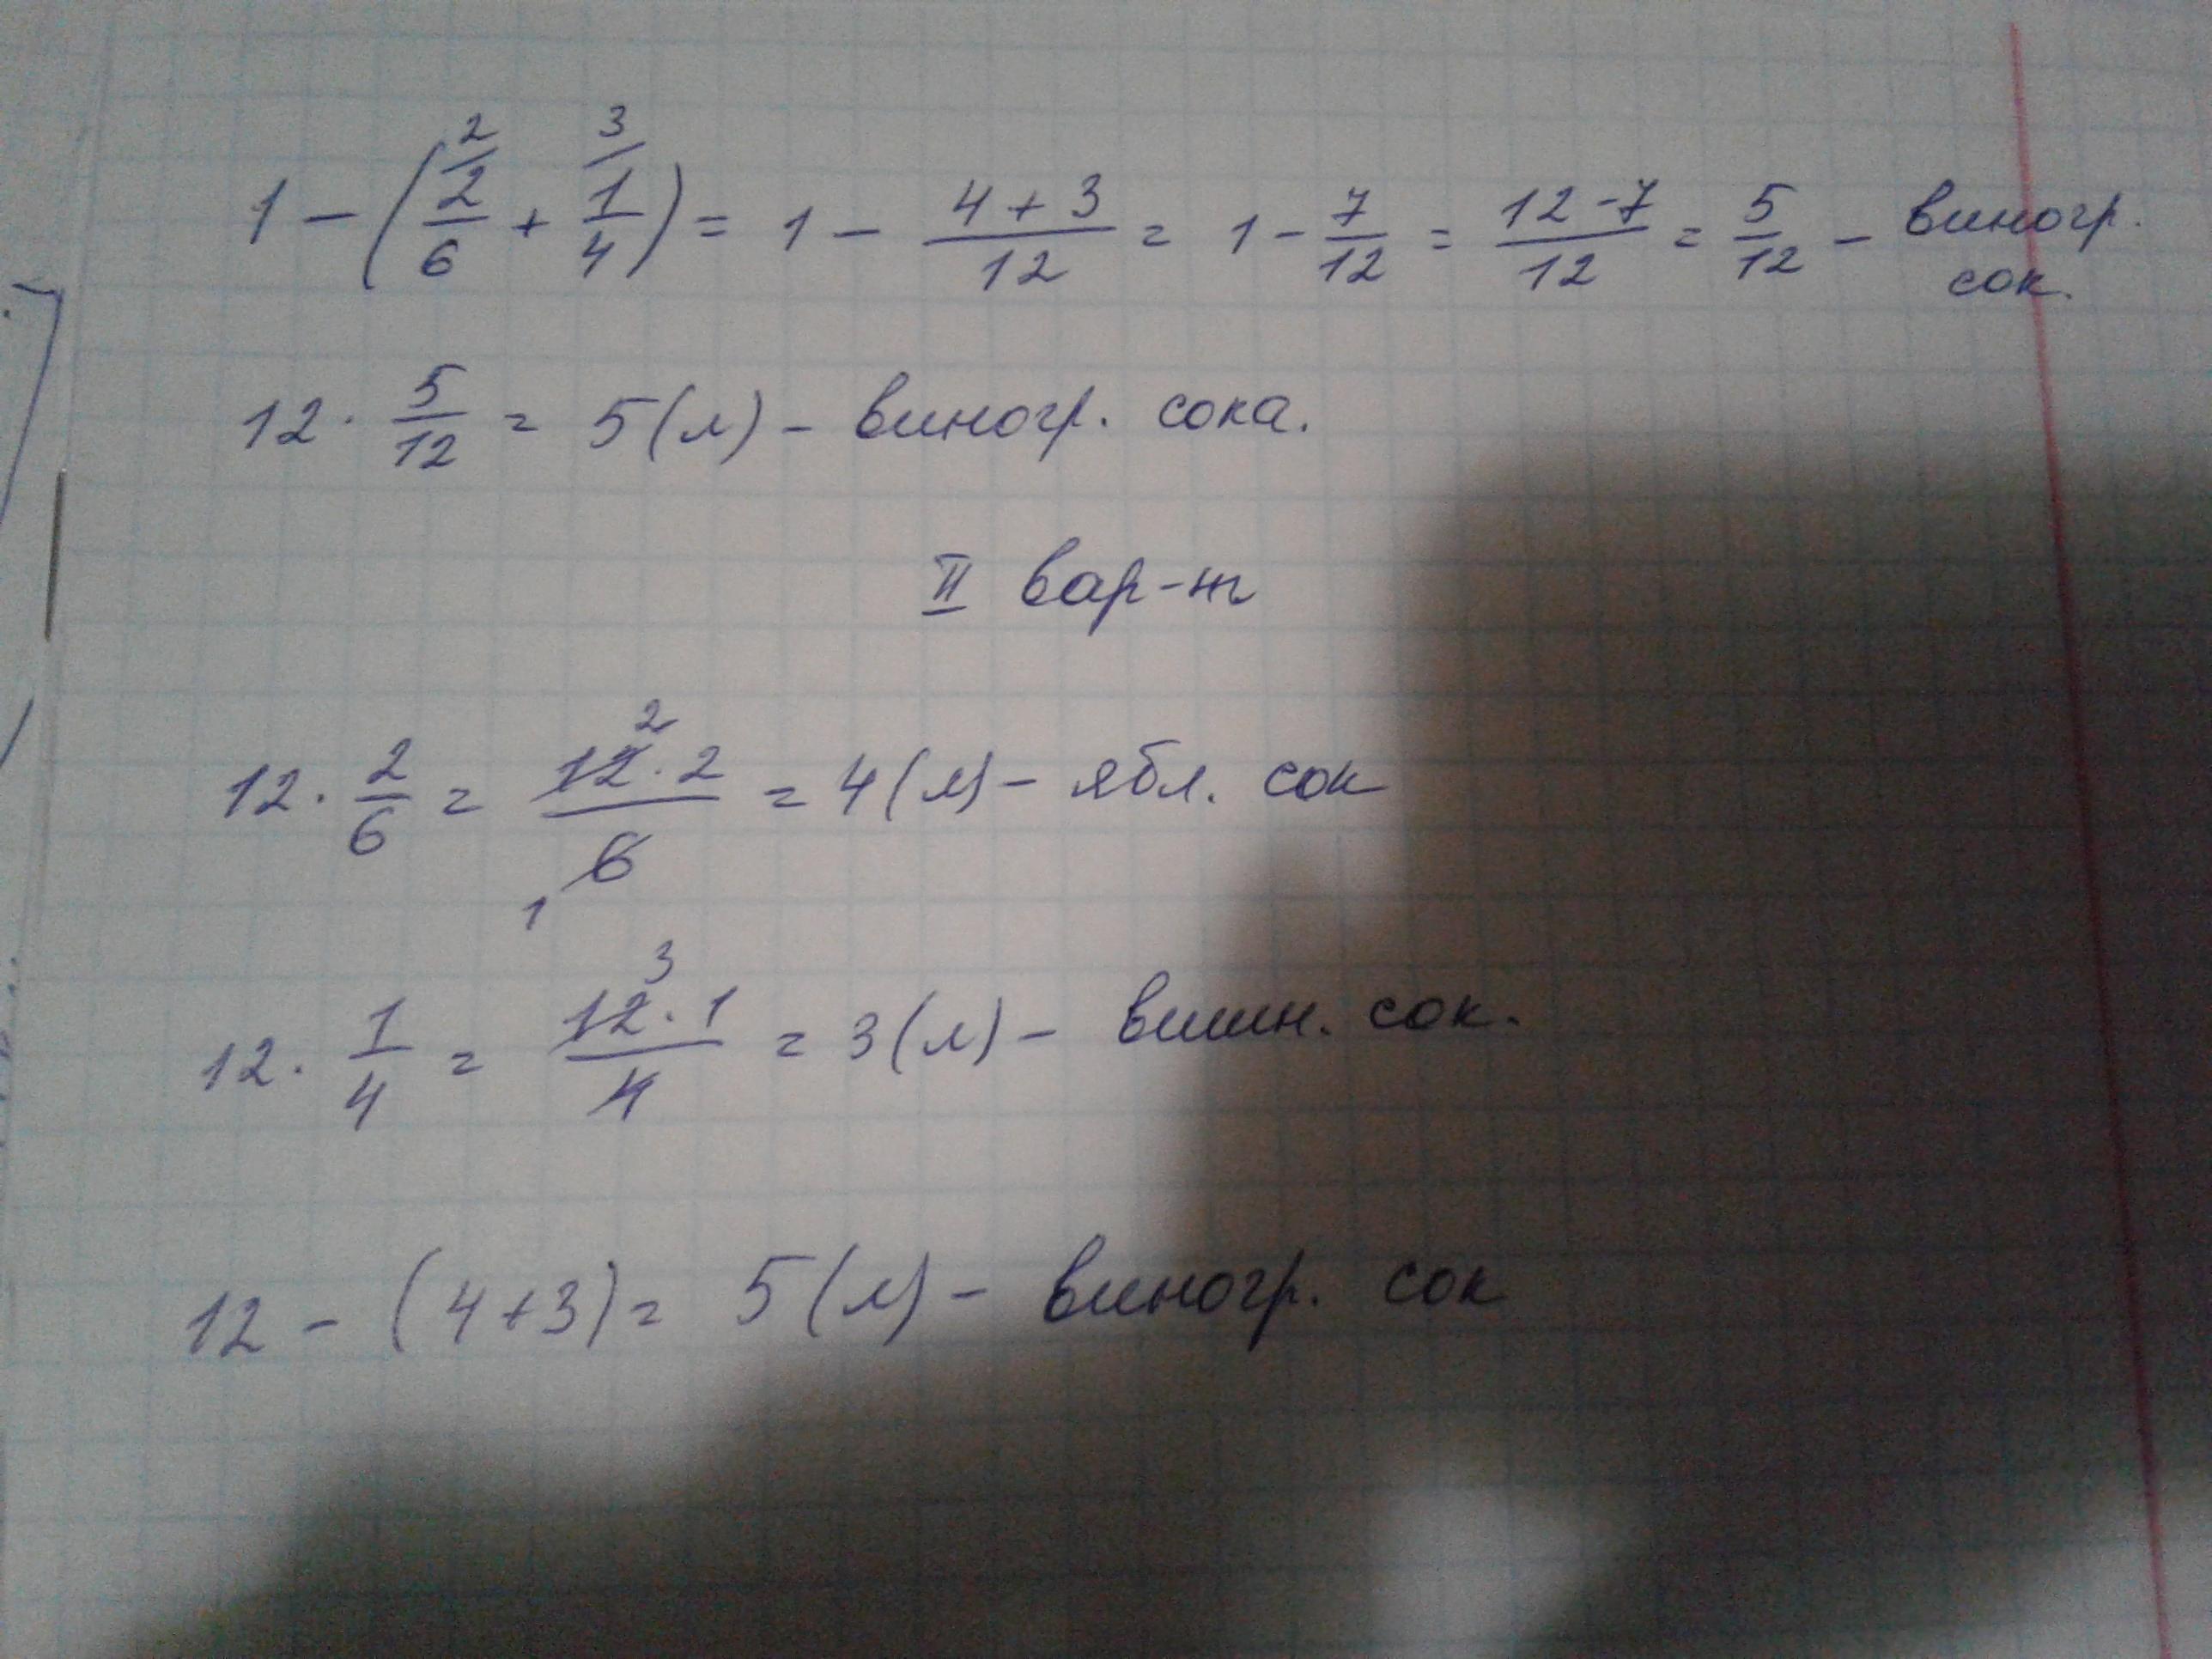 1 - (2/ 2/6 + 3/ 1/4) = 1 - (4+3)/12 = 1 - 7/12 = (12-7)/12 = 5/12 - виногр.
сок.
12 · 5/12 = 5(л) - виногр. сока.
II вар-нт
12 · 2/6 = (12² · 2)/(₁6) = 4(л) - ябл. сок
12 · 1/4 = (12³ · 1)/4 = 3(л) - вишн. сок.
12 - (4+3) = 5(л) - виногр. сок